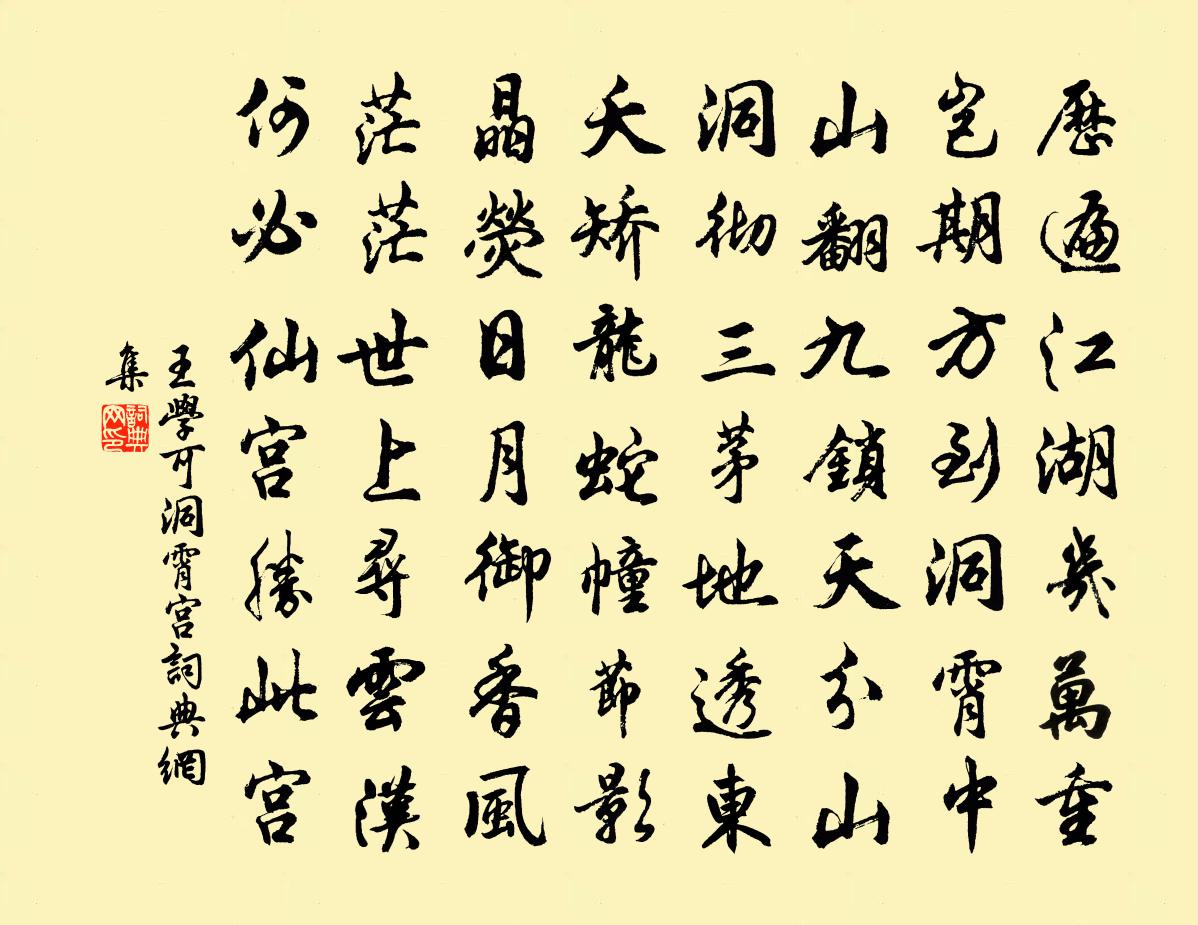 歷遍江湖幾萬重
豈期方到洞霄中
山翻九鎖天分山
洞徹三茅地透東
夭矯龍蛇幢節影
晶熒日月御香風
茫茫世上尋雲漢
何必仙宮勝此宮
王學可洞霄宮詞典網
集
詞典
网印